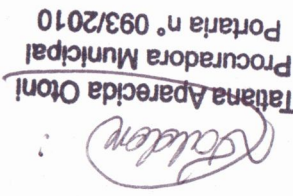 Tatiana Aparecida Otoni
Procuradora Municipal
Portaria n° 093/2010